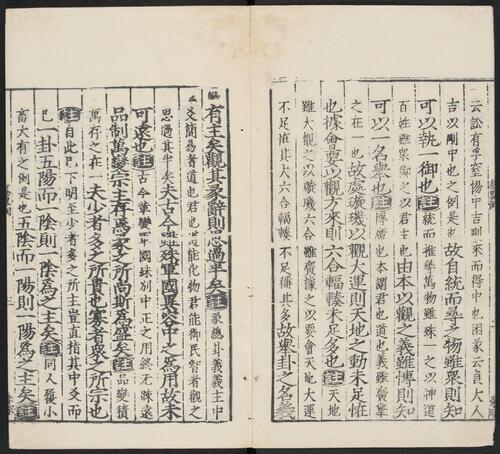 云訟有孚窒惕中吉剛來而得中也困彖云貞大人
吉以剛中也之例是也故自統而尋之物雖衆則知
可以執一御也註統而推尋萬物雖殊一之以神道
百姓雖衆御之以君主也由本以觀之義雖博則知
可以一名舉也註博廣也本謂君也道也義雖廣舉
之在一也故處璇璣以觀大運則天地之動未足怪
也據會要以觀方來則六合輻輳未足多也註天地
雖大觀之以璇璣六合雖廣據之以要會天地大運
不足怪其大六合輻輳不足稱其多故舉卦之名義
有主矣觀其彖辭則思過半矣註彖總卦義義主中
爻簡易者道也君也道能化物君能御民智者觀之
思過其半矣夫古今雖殊軍國異容中之爲用故未
可遠也註古今革變軍國殊別中正之用終无疎遠
品制萬變宗主存焉彖之所尚斯爲盛矣註品變積
萬存之在一夫少者多之所貴也寡者衆之所宗也
註自此已下明至少者多之所主豈直指其中爻而
已一卦五陽而一陰則一陰爲之主矣註同人履小
畜大有之例是也五陰而一陽則一陽爲之主矣註